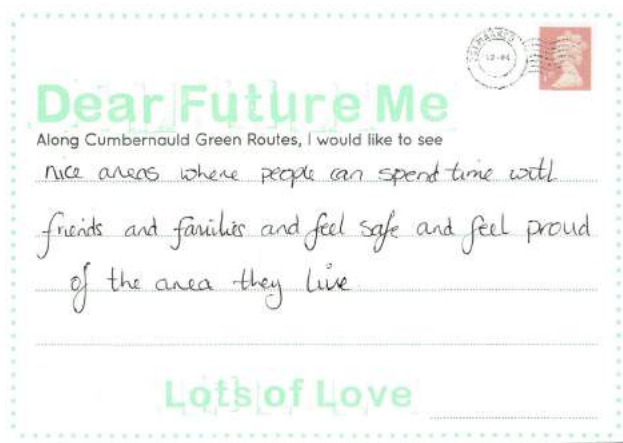 Dear Future Me
Along Cumbernauld Green Routes, I would like to see
nice areas where people can spend time with
friends and families and feel safe and feel proud
of the area they live
Lots of Love